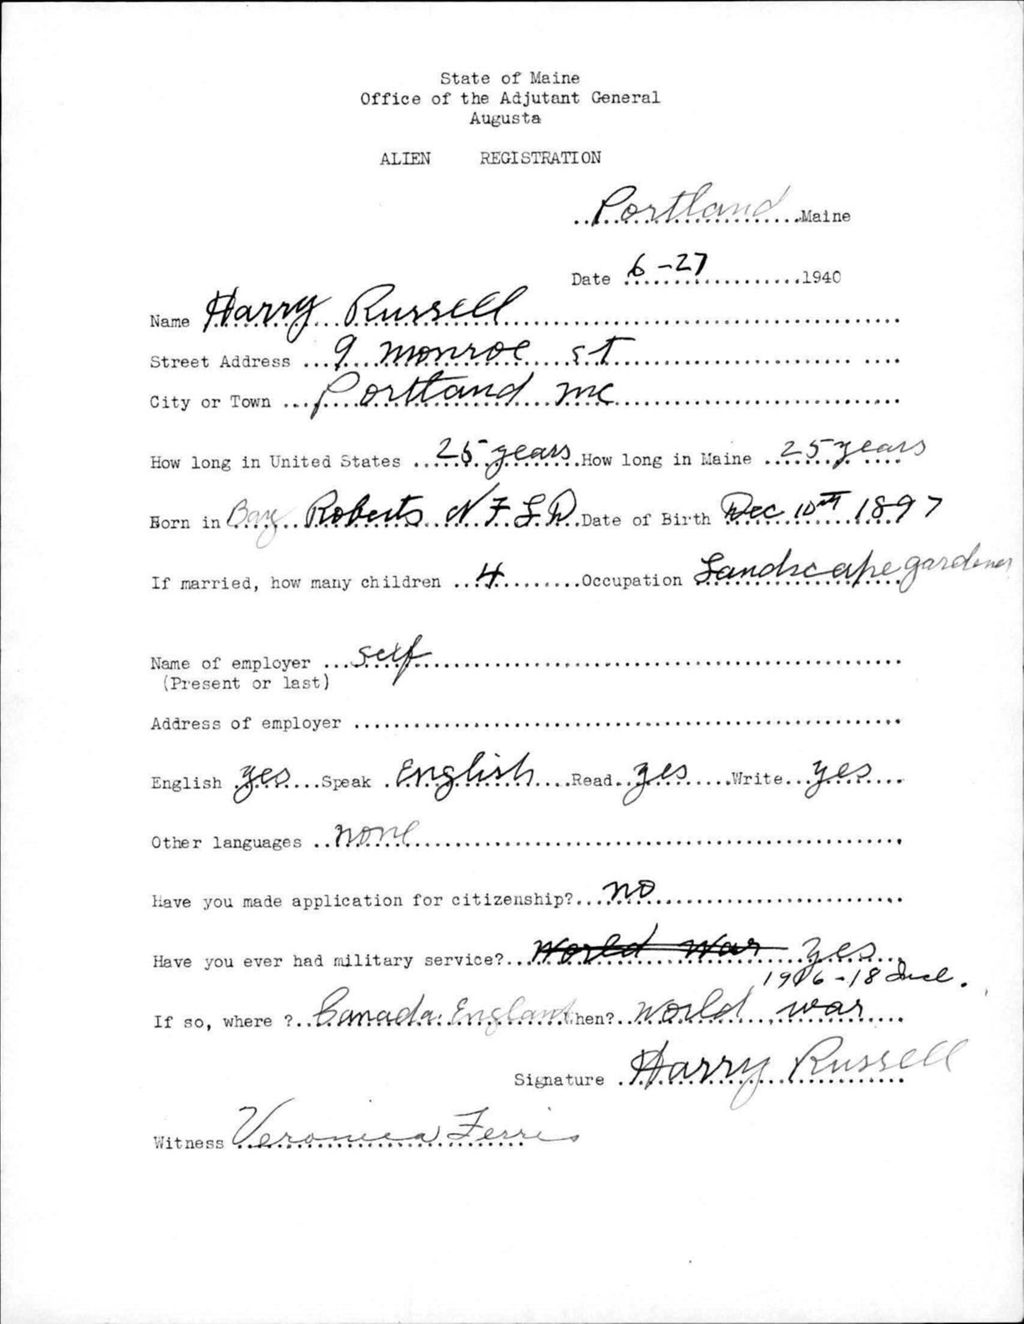 State of Maine
Office of the Adjutant General
Augusta
ALIEN REGISTRATION
Portland Maine
Date 6-27 1940
Name Harry Russell
Street Address 9 monroe st
City or Town Portland me
How long in United States 25 years How long in Maine 25 years
Born in Bay Roberts N.F.L.D. Date of Birth Dec 10th 1897
If married, how many children 4 Occupation Landscape gardener
Name of employer self
(Present or last)
Address of employer
English yes Speak English Read yes Write yes
Other languages none
Have you made application for citizenship? no
Have you ever had military service? World War yes
1916-18 Incl.
If so, where ? Canada England When? World war
Signature Harry Russell
Witness Veronica Ferris